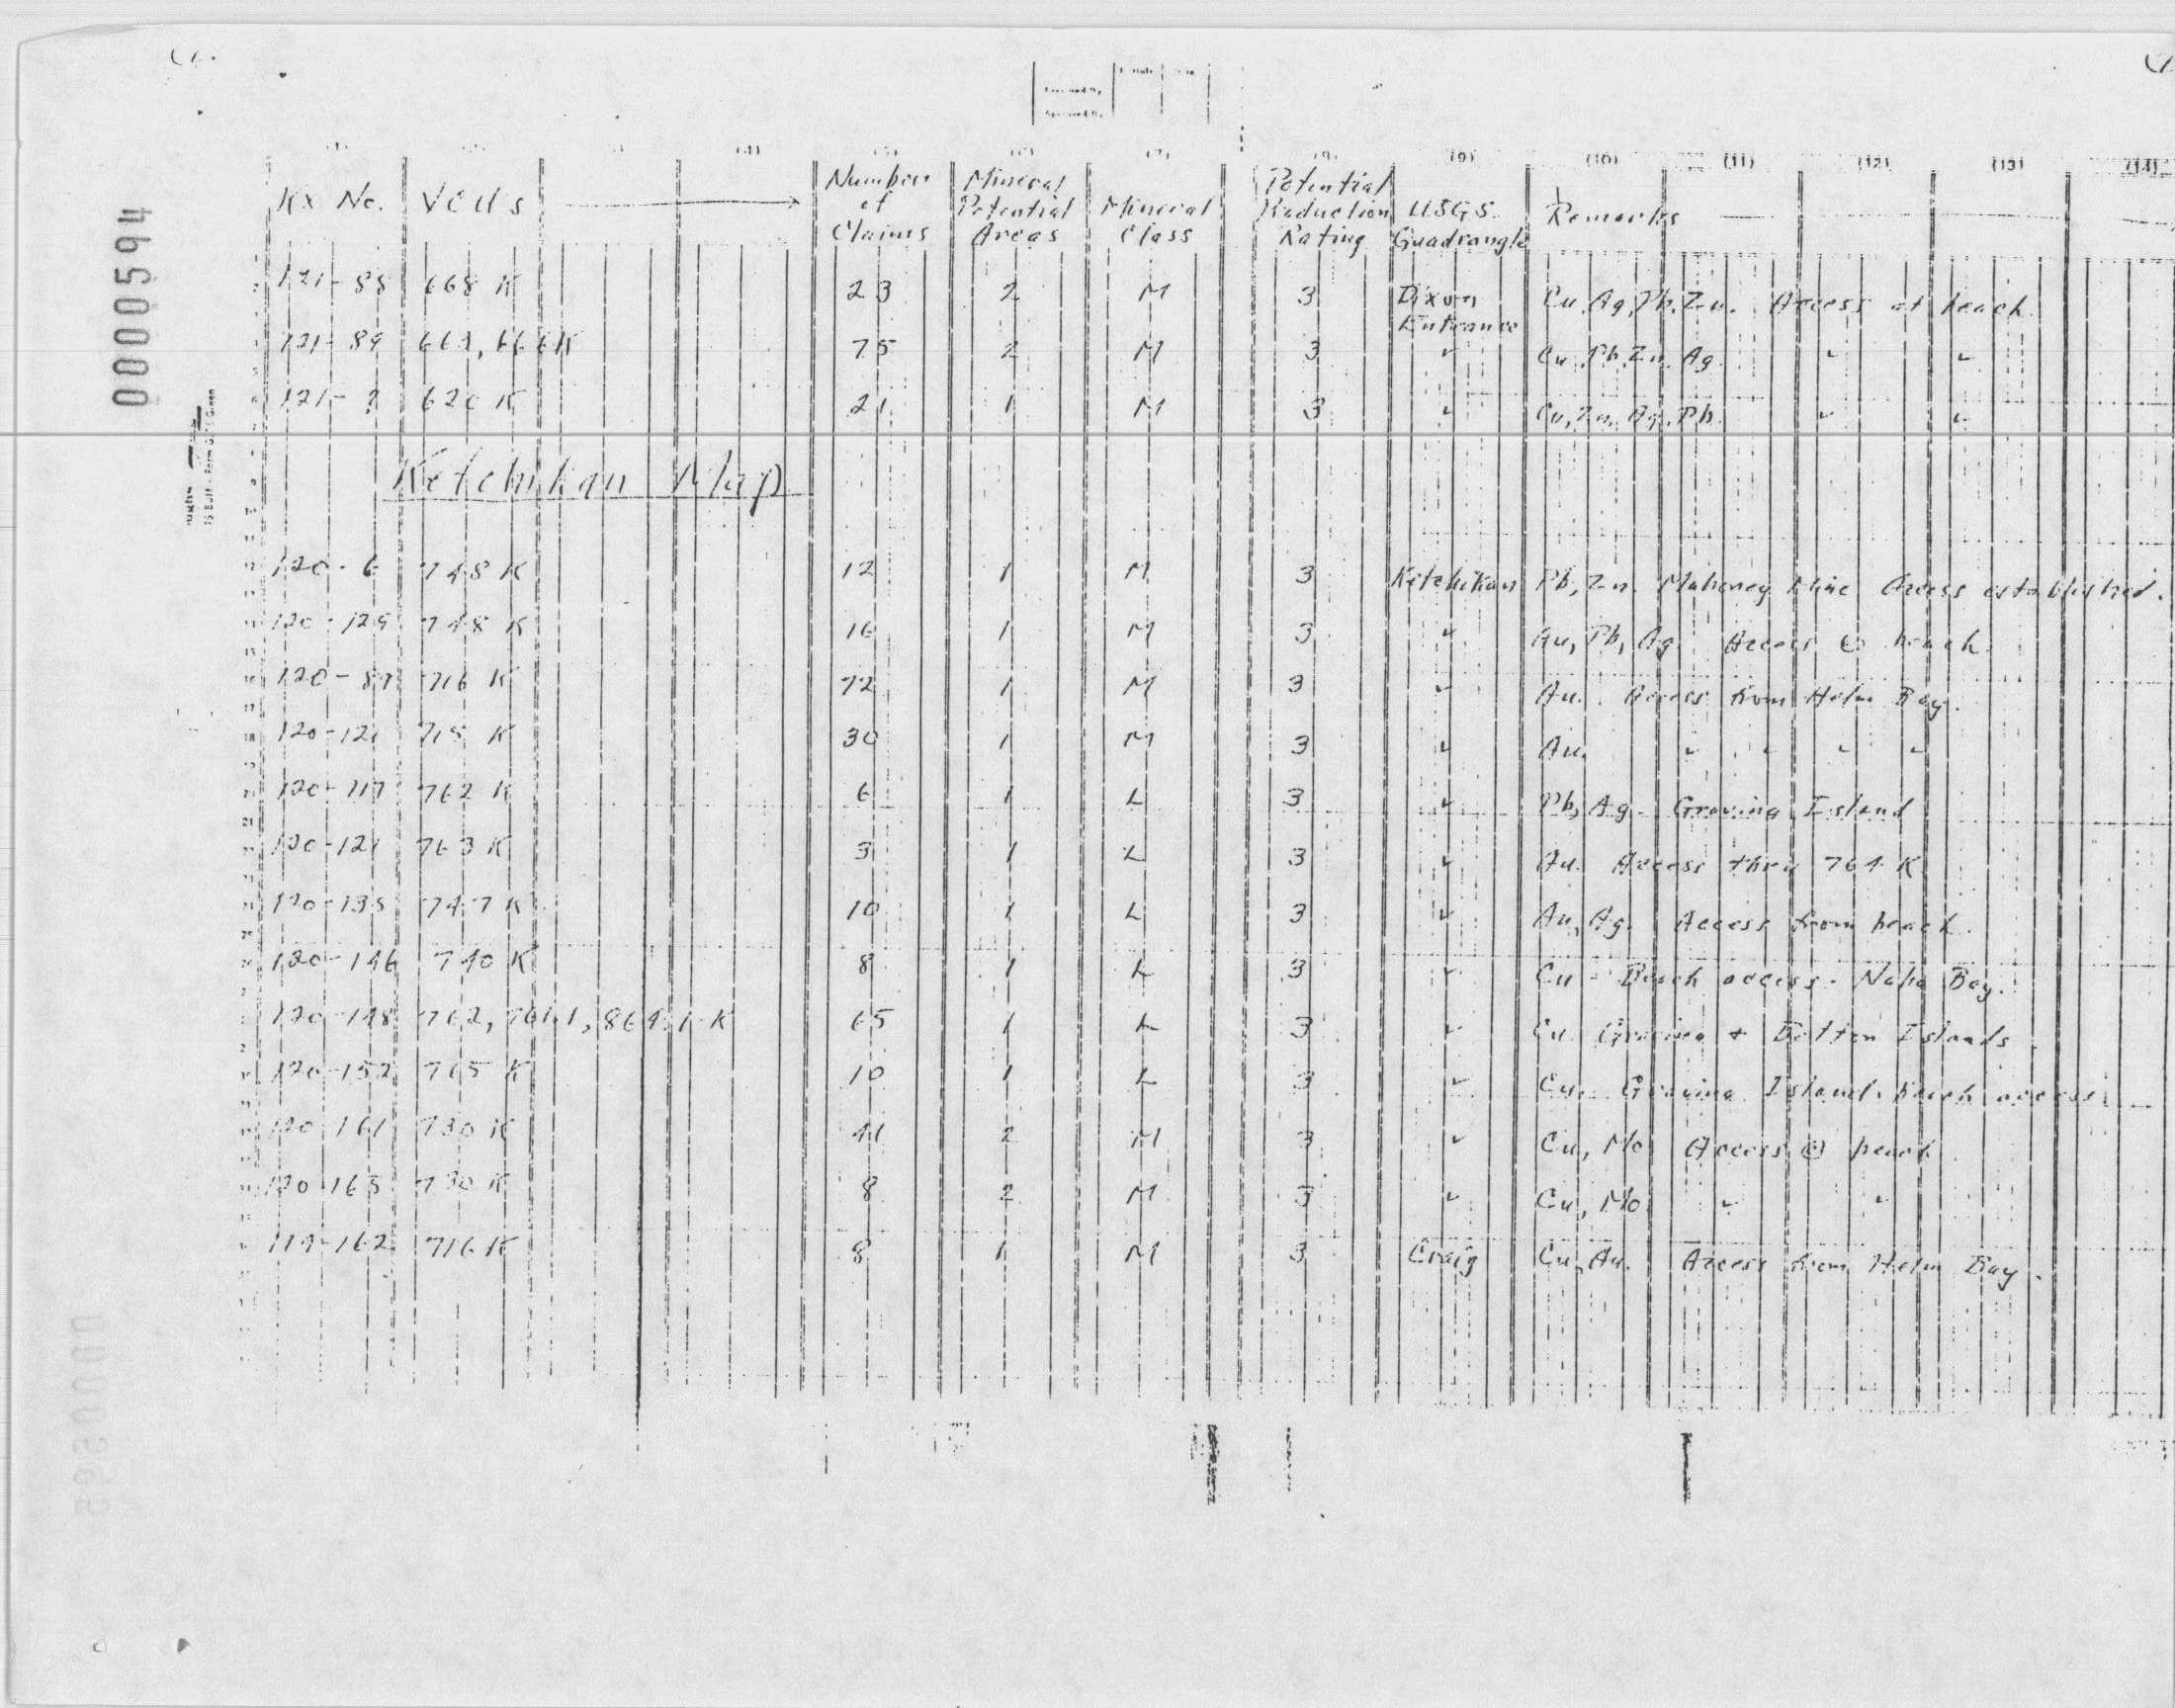 0000594
(4) (7) (9) (10) (11) (12) (13) (14)
Kx No. VCUs Number of Claims Mineral Potential Areas Mineral Class Potential Production Rating USGS Quadrangle Remarks
121-88 668 K 23 2 M 3 Dixon Entrance Cu, Ag, Pb, Zn. Access at beach.
121-89 75 2 M 3 ✓ Cu, Pb, Zn, Ag. ✓ ✓
121-? 620 K 21 1 M 3 ✓ Cu, Zn, Ag, Pb. ✓ ✓
Ketchikan Map
120-6 748 K 12 1 M 3 Ketchikan Pb, Zn. Mahoney Mine Access established.
120-129 748 K 16 1 M 3 ✓ Au, Pb, Ag Access @ beach.
120-87 716 K 72 1 M 3 ✓ Au. Access from Helm Bay.
715 K 30 1 M 3 ✓ Au. ✓ ✓ ✓ ✓
120-117 762 K 6 1 L 3 ✓ Pb, Ag - Gravina Island
120-121 763 K 3 1 L 3 ✓ Au. Access thru 764 K
120-135 747 K 10 1 L 3 ✓ Au, Ag. Access from beach.
120-146 740 K 8 1 L 3 ✓ Cu - Beach access - Naha Bay.
120-148 762, K 65 1 L 3 ✓ Cu. Gravina + Islands
120-152 765 K 10 1 L 3 ✓ Cu. Gravina Island. beach access.
120-161 730 K 41 2 M 3 ✓ Cu, Mo Access @ beach
120-165 730 K 8 2 M 3 ✓ Cu, Mo ✓ ✓
119-162 716 K 8 1 M 3 Craig Cu, Au. Access from Helm Bay.